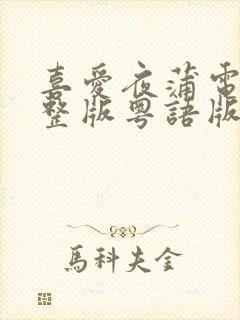 喜愛夜蒲電
整版粵語版
馬科夫金